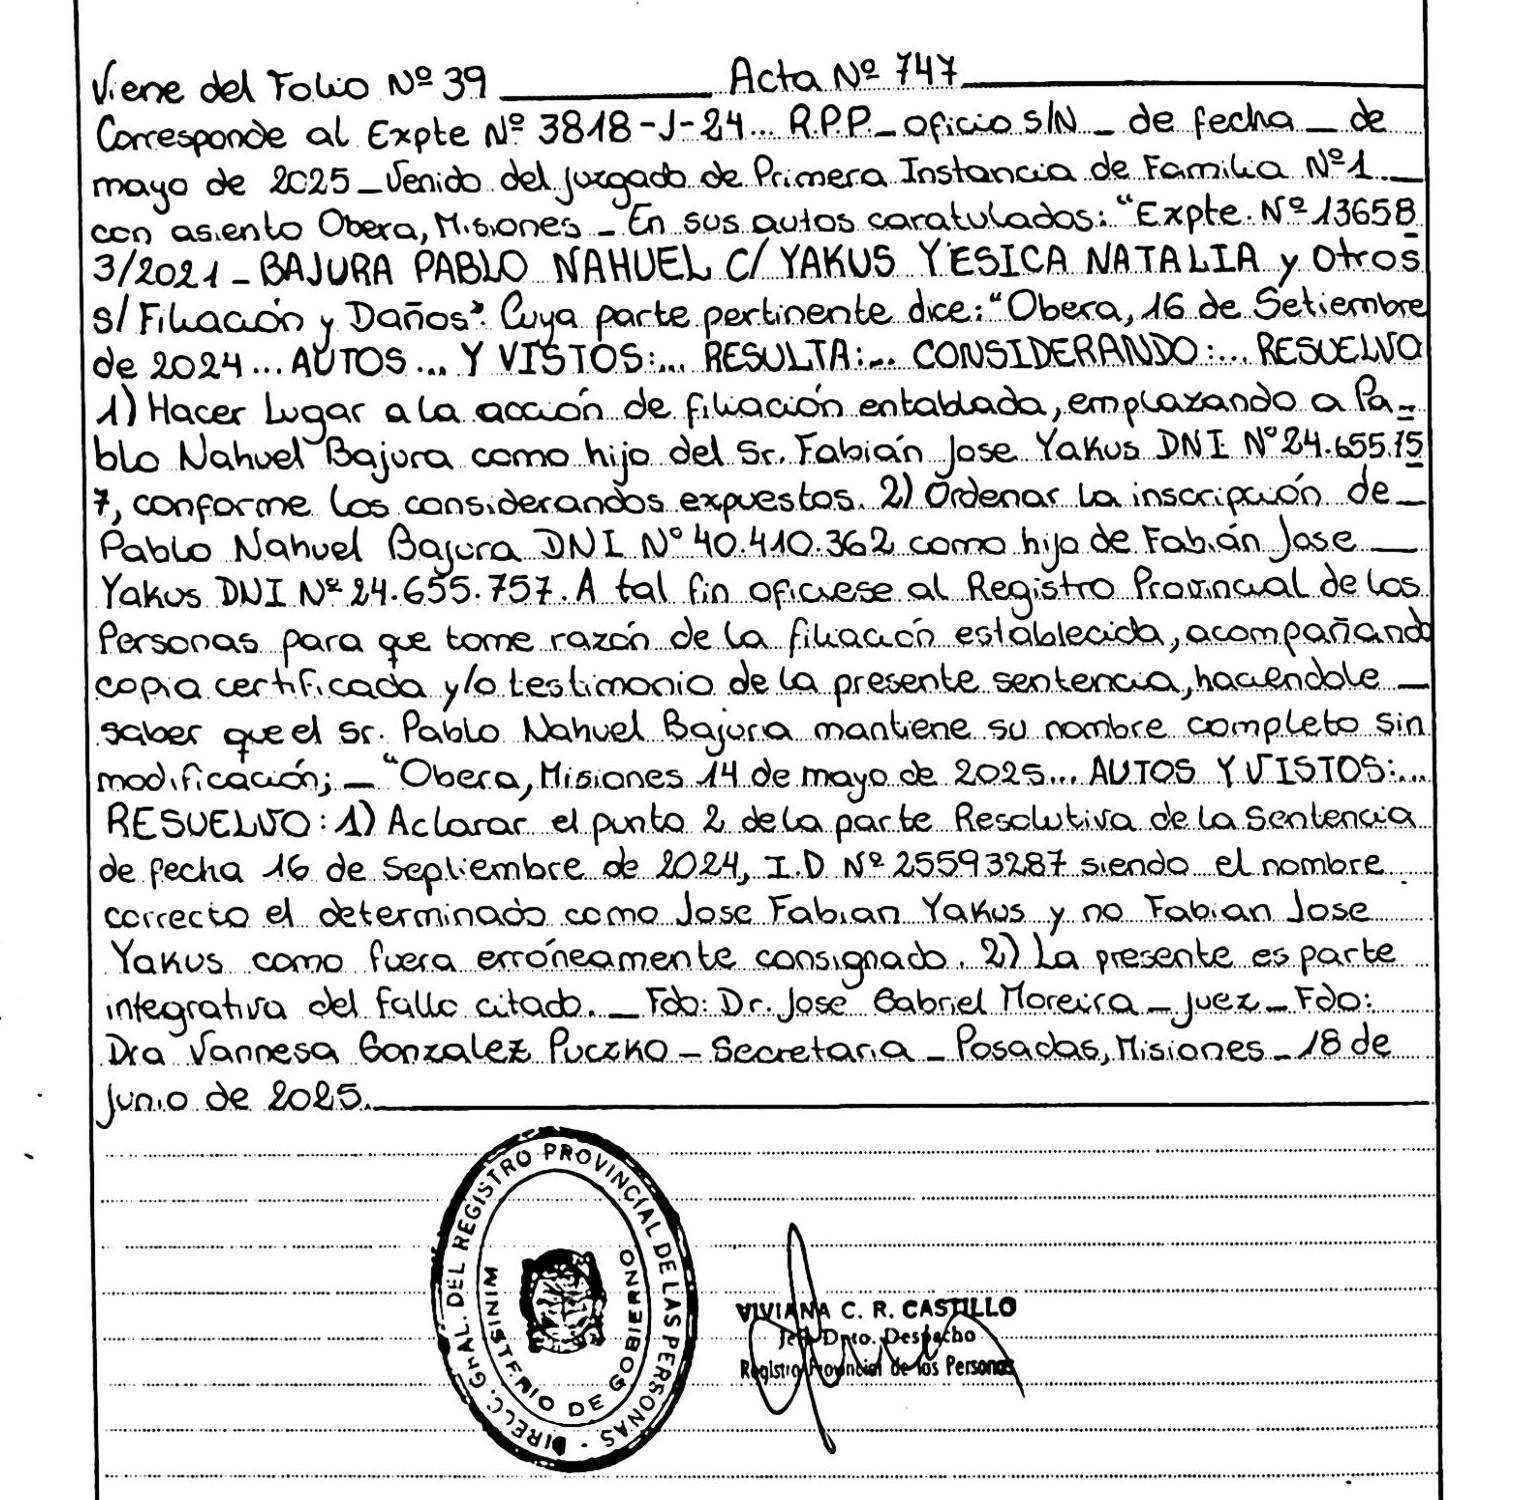 Viene del Folio Nº 39 ________ Acta Nº 747 ________
Corresponde al Expte Nº 3818-J-24... R.P.P._ oficio s/N _ de fecha _ de
mayo de 2025_Venido del juzgado de Primera Instancia de Familia Nº1 _
con asiento Obera, Misiones _ En sus autos caratulados: "Expte. Nº 13658
3/2021 _ BAJURA PABLO NAHUEL C/ YAKUS YESICA NATALIA y Otros
s/ Filiación y Daños". Cuya parte pertinente dice: "Obera, 16 de Setiembre
de 2024... AUTOS... Y VISTOS:... RESULTA:... CONSIDERANDO:... RESUELVO
1) Hacer Lugar a la acción de filiación entablada, emplazando a Pa=
blo Nahuel Bajura como hijo del Sr. Fabián Jose Yakus DNI Nº 24.655.75
7, conforme los considerandos expuestos. 2) Ordenar la inscripción de _
Pablo Nahuel Bajura DNI Nº 40.410.362 como hijo de Fabián Jose _
Yakus DNI Nº 24.655.757. A tal fin ofíciese al Registro Provincial de las
Personas para que tome razón de la filiación establecida, acompañando
copia certificada y/o testimonio de la presente sentencia, haciendole _
saber que el Sr. Pablo Nahuel Bajura mantiene su nombre completo sin
modificación; _ "Obera, Misiones 14 de mayo de 2025... AUTOS Y VISTOS:...
RESUELVO: 1) Aclarar el punto 2 de la parte Resolutiva de la Sentencia
de fecha 16 de Septiembre de 2024, I.D Nº 25593287 siendo el nombre
correcto el determinado como Jose Fabian Yakus y no Fabian Jose
Yakus como fuera erróneamente consignado. 2) La presente es parte
integrativa del fallo citado. _ Fdo: Dr. José Gabriel Moreira _ juez _ Fdo:
Dra Vannesa Gonzalez Puczko _ Secretaria _ Posadas, Misiones _ 18 de
junio de 2025. ________
DIRECC. GRAL. DEL REGISTRO PROVINCIAL DE LAS PERSONAS ·
MINISTERIO DE GOBIERNO
VIVIANA C. R. CASTILLO
Jefa Dpto. Despacho
Registro Provincial de las Personas